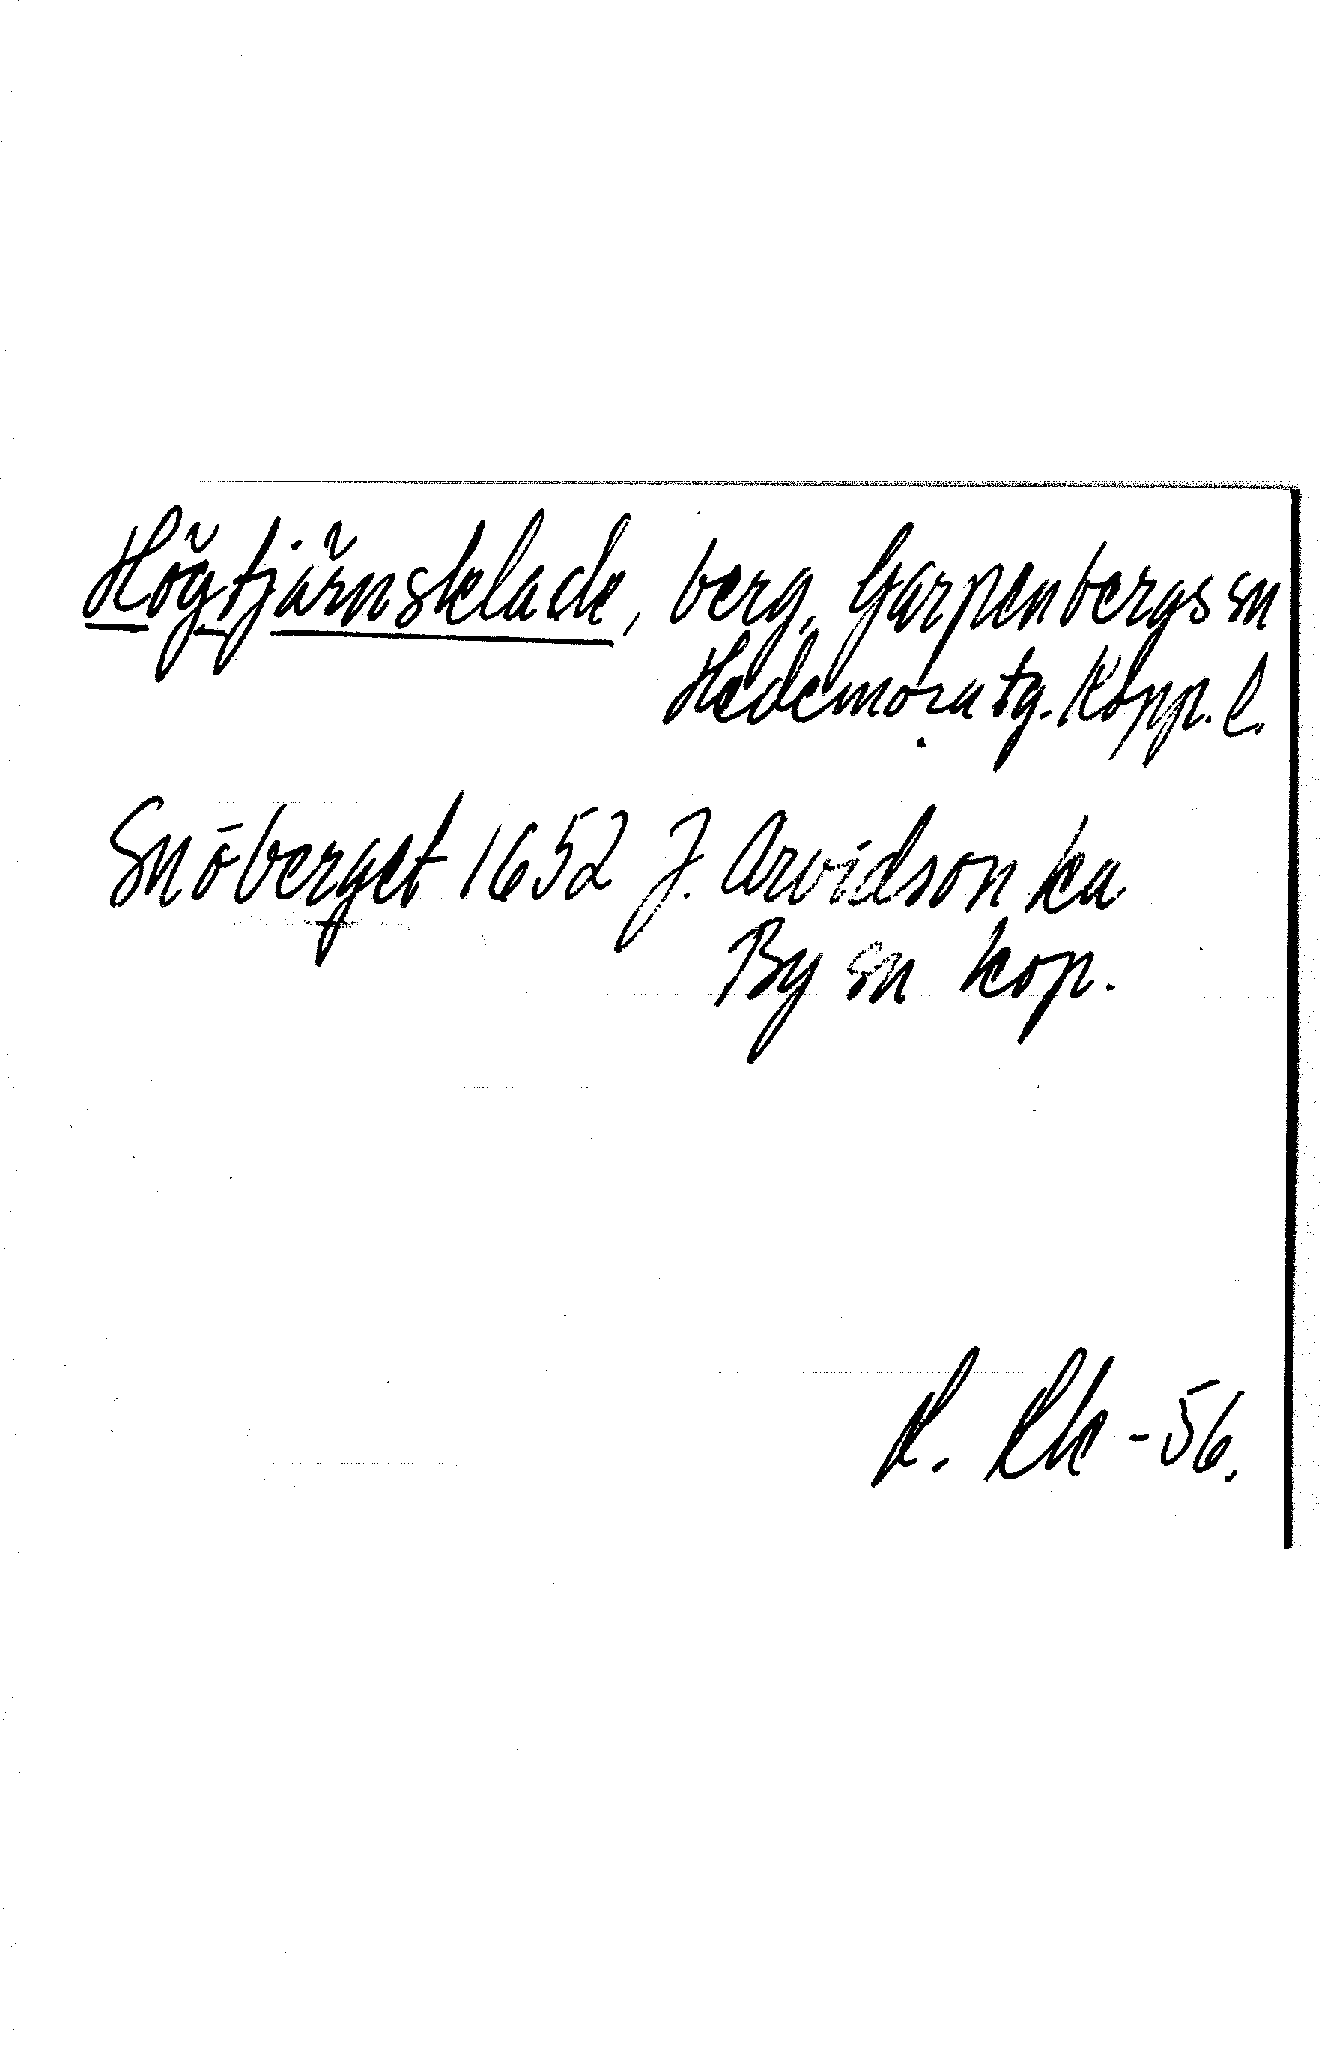 Högtjärnsklack, berg, Garpenbergs sn
Hedemora tg. Kopp. l.
Snöberget 1652 J. Arvidson ka
By sn kop.
R. Rk -56.